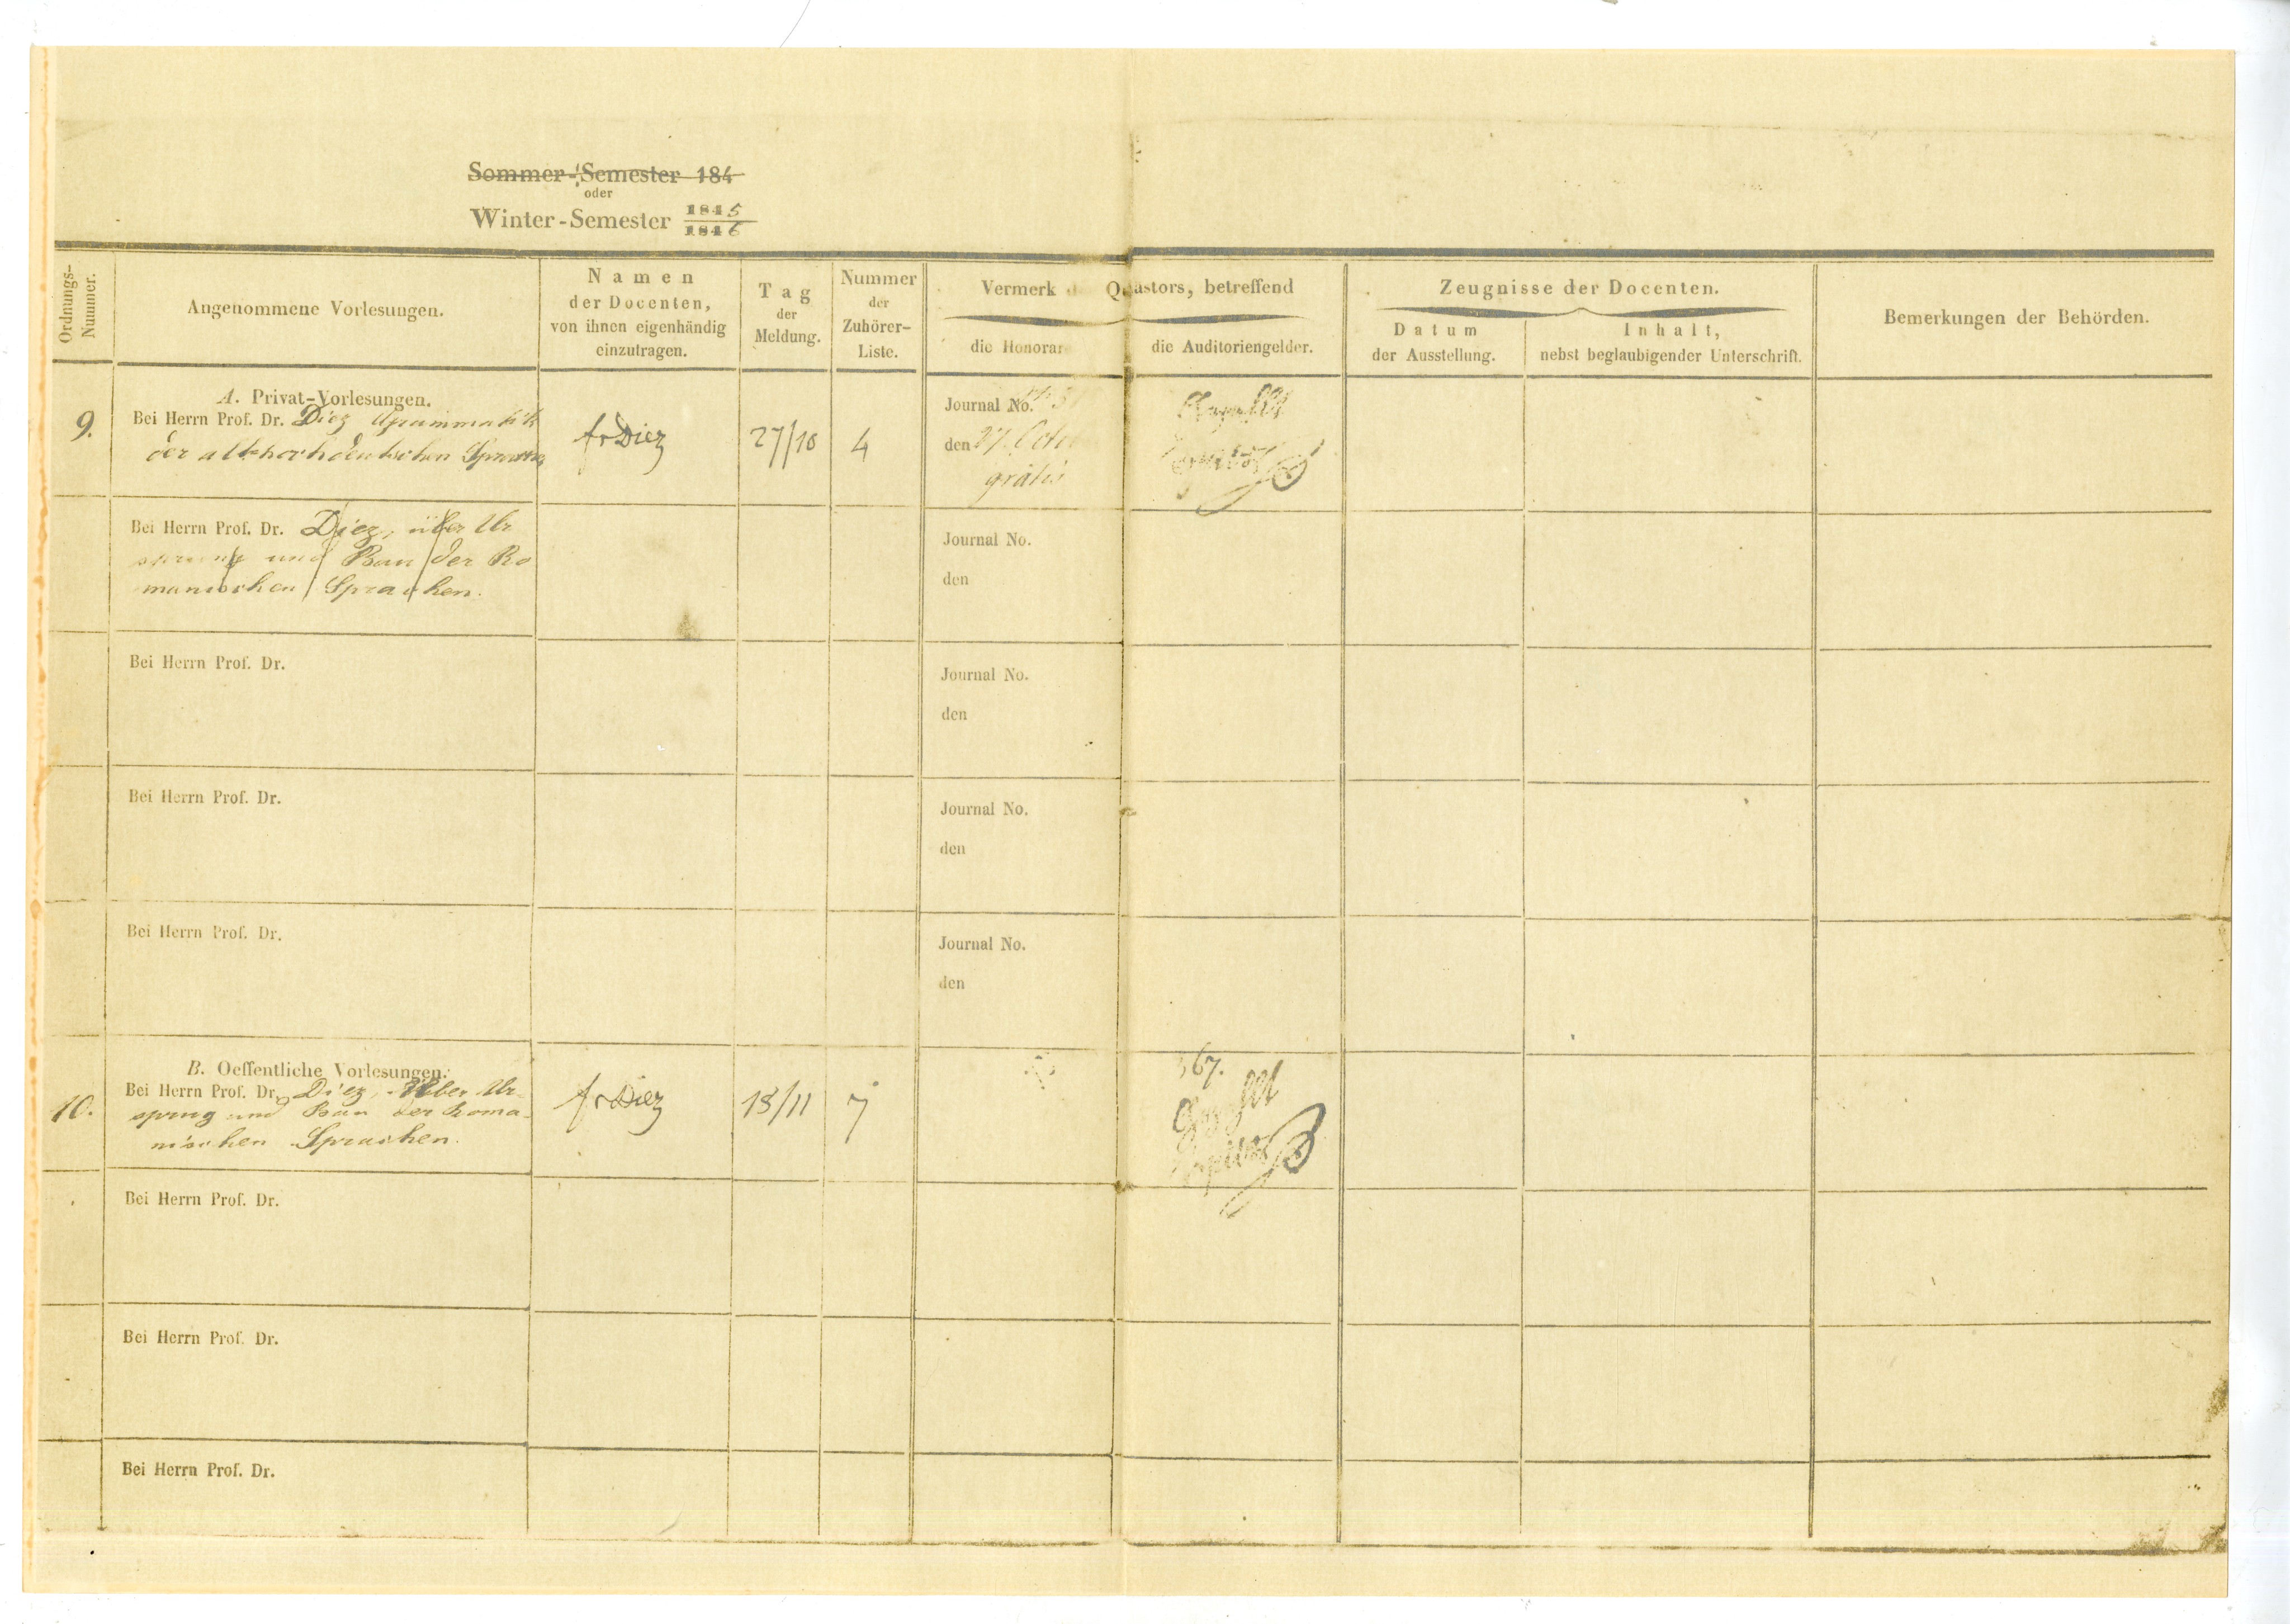 Sommer-Semester 184
oder
Winter-Semester 1845
1846
Ordnungs-
Nummer.
Angenommene Vorlesungen.
Namen
der Docenten,
von ihnen eigenhändig
einzutragen.
Tag
der
Meldung.
Nummer
der
Zuhörer-
Liste.
Vermerk Quästors, betreffend
die Honorar
die Auditoriengelder.
Zeugnisse der Docenten.
Datum
der Ausstellung.
Inhalt,
nebst beglaubigender Unterschrift.
Bemerkungen der Behörden.
A. Privat-Vorlesungen.
9.
Bei Herrn Prof. Dr. Diez Grammatik
der althochdeutschen Sprache
fr Diez
27/10
4
Journal No.
den 27. Octu
gratis
Bei Herrn Prof. Dr. Diez, über Ur
sprung und Bau der Ro
manischen Sprachen.
Journal No.
den
Bei Herrn Prof. Dr.
Journal No.
den
Bei Herrn Prof. Dr.
Journal No.
den
Bei Herrn Prof. Dr.
Journal No.
den
B. Oeffentliche Vorlesungen.
10.
Bei Herrn Prof. Dr. Diez, Über Ur-
sprung und Bau der Roma-
nischen Sprachen.
fr Diez
13/11
7
367.
Bei Herrn Prof. Dr.
Bei Herrn Prof. Dr.
Bei Herrn Prof. Dr.